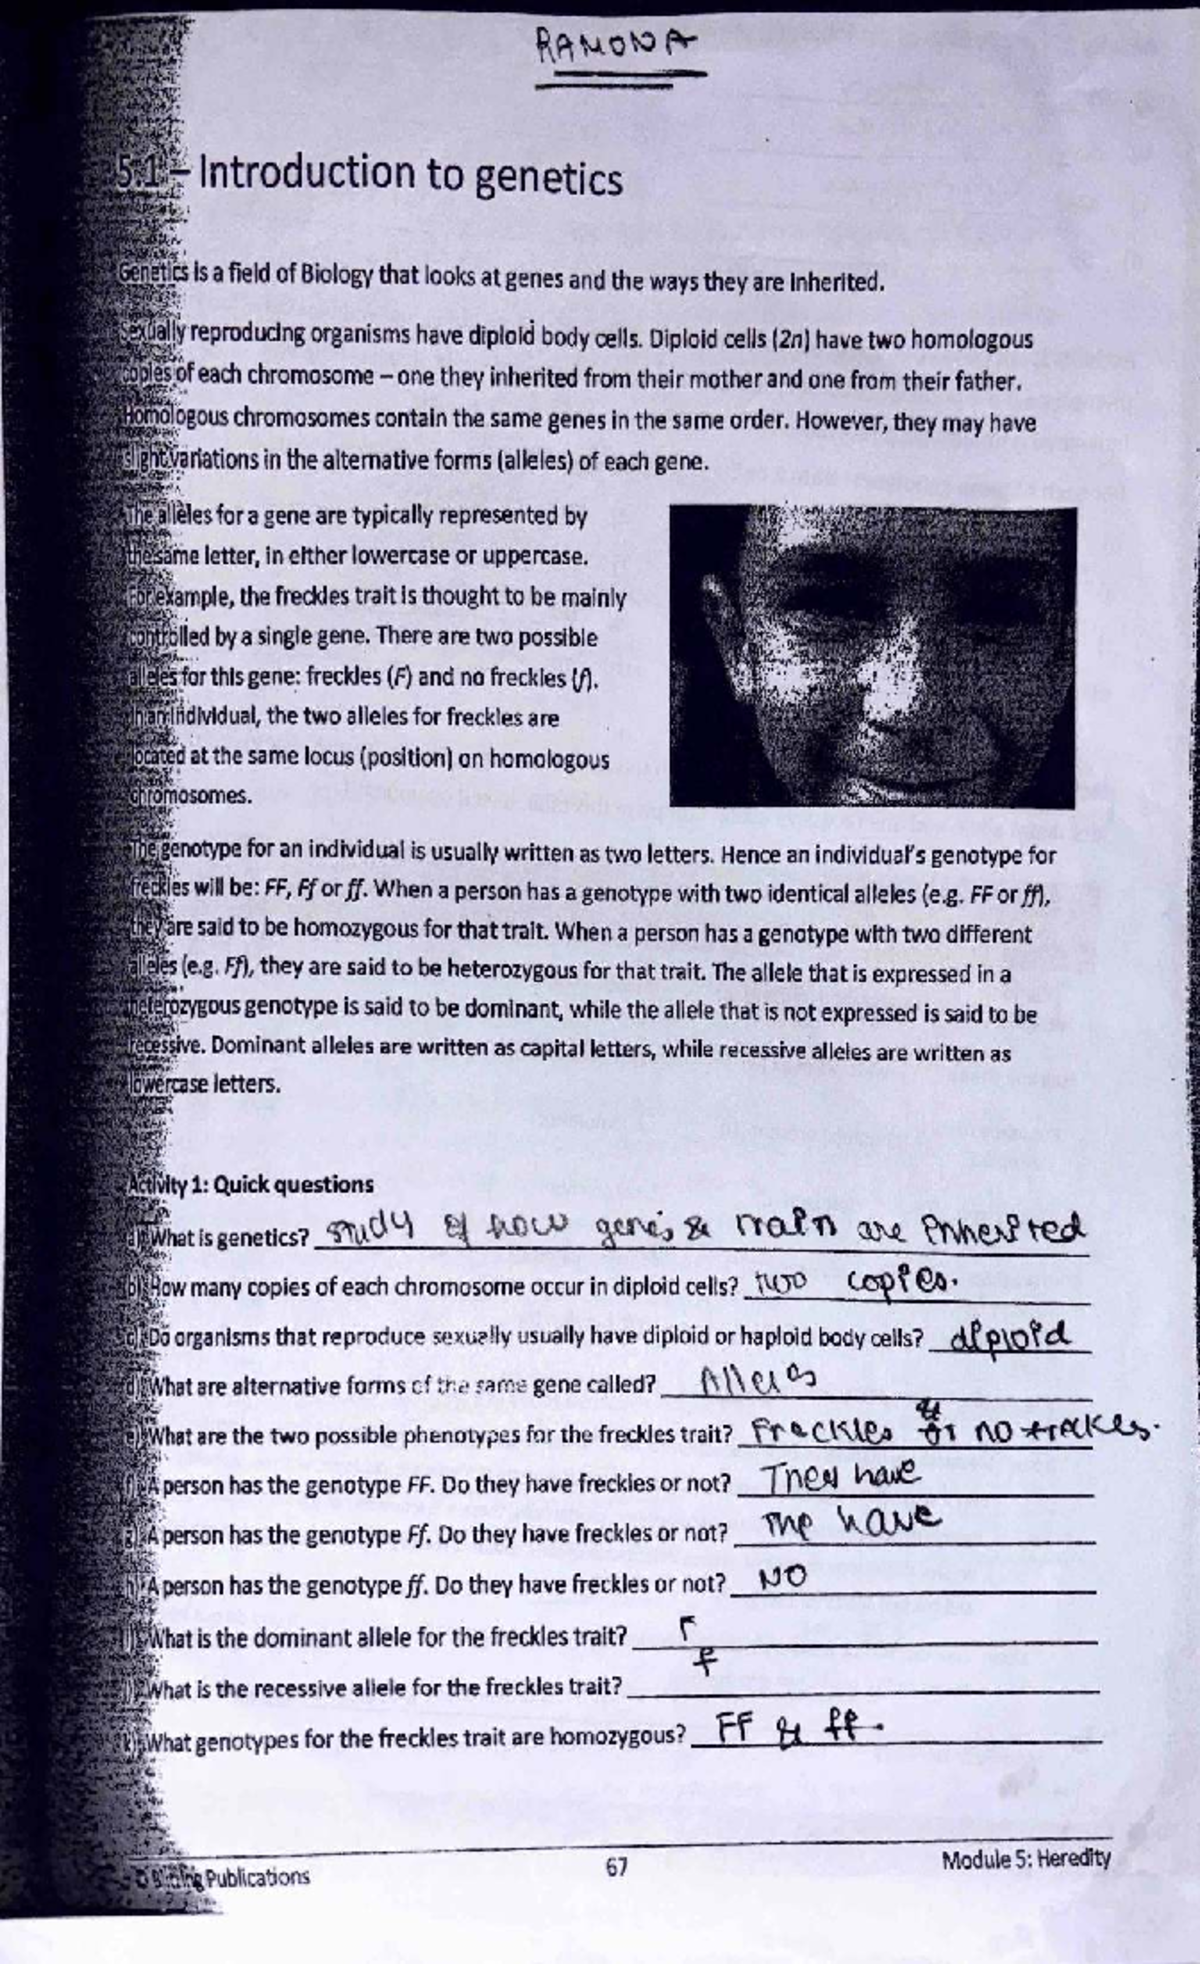 RAMONA
5.1 – Introduction to genetics
Genetics is a field of Biology that looks at genes and the ways they are inherited.
Sexually reproducing organisms have diploid body cells. Diploid cells (2n) have two homologous
copies of each chromosome – one they inherited from their mother and one from their father.
Homologous chromosomes contain the same genes in the same order. However, they may have
slight variations in the alternative forms (alleles) of each gene.
The alleles for a gene are typically represented by
the same letter, in either lowercase or uppercase.
For example, the freckles trait is thought to be mainly
controlled by a single gene. There are two possible
alleles for this gene: freckles (F) and no freckles (f).
In an individual, the two alleles for freckles are
located at the same locus (position) on homologous
chromosomes.
The genotype for an individual is usually written as two letters. Hence an individual's genotype for
freckles will be: FF, Ff or ff. When a person has a genotype with two identical alleles (e.g. FF or ff),
they are said to be homozygous for that trait. When a person has a genotype with two different
alleles (e.g. Ff), they are said to be heterozygous for that trait. The allele that is expressed in a
heterozygous genotype is said to be dominant, while the allele that is not expressed is said to be
recessive. Dominant alleles are written as capital letters, while recessive alleles are written as
lowercase letters.
Activity 1: Quick questions
a) What is genetics? study of how genes & are inherited
b) How many copies of each chromosome occur in diploid cells? two copies.
c) Do organisms that reproduce sexually usually have diploid or haploid body cells? diploid
d) What are alternative forms of the same gene called? Alleles
e) What are the two possible phenotypes for the freckles trait? Freckles & no freckles.
f) A person has the genotype FF. Do they have freckles or not? They have
g) A person has the genotype Ff. Do they have freckles or not? have
h) A person has the genotype ff. Do they have freckles or not? NO
i) What is the dominant allele for the freckles trait?
j) What is the recessive allele for the freckles trait? f
k) What genotypes for the freckles trait are homozygous? FF & ff.
Publications 67 Module 5: Heredity